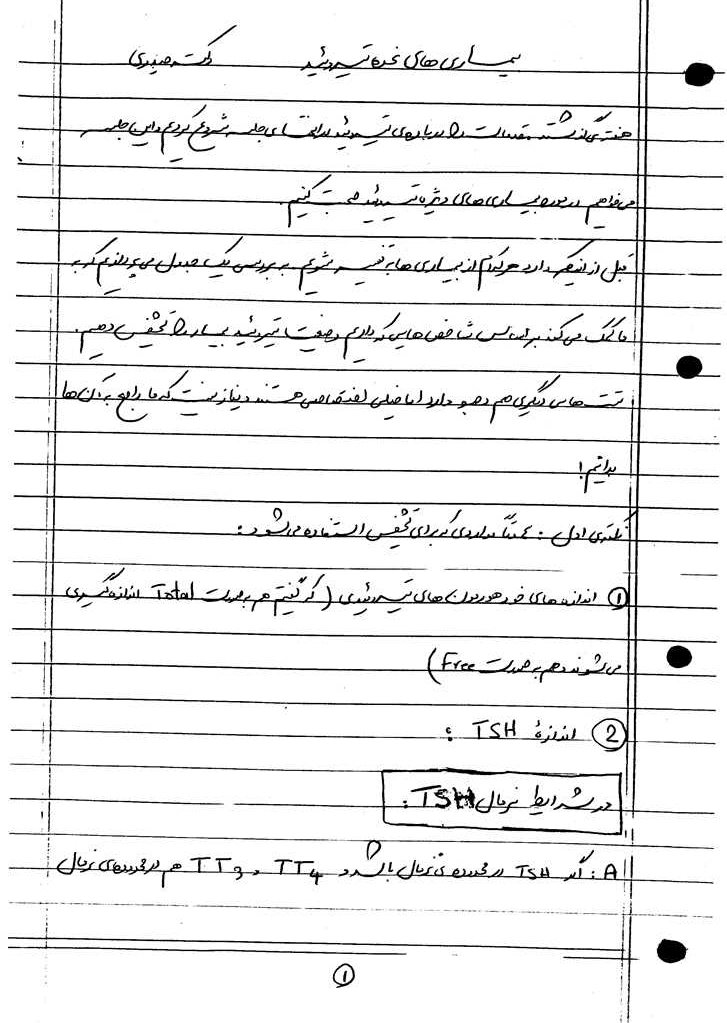 بیماری های غده تیروئید دکتر حیدری
هفته‌ی گذشته مقدمات را درباره‌ی تیروئید در ابتدای جلسه شروع کردیم و این جلسه
می‌خواهیم در مورد بیماری های ویژه تیروئید صحبت کنیم.
قبل از اینکه وارد هر کدام از بیماری ها به تفسیر شویم به بررسی یک جدول می‌پردازیم که به
ما کمک می‌کند بر اساس شاخص هایی که داریم وضعیت تیروئید بیمار را تشخیص دهیم.
تست هایی دیگری هم وجود دارد اما خیلی اختصاصی هستند و نیاز نیست که ما راجع به آن ها
بدانیم!
نکته‌ی اول: عمدتاً مواردی که برای تشخیص استفاده می‌شود:
① اندازه های خود هورمون های تیروئیدی (که گفتیم هم به صورت Total اندازه گیری
می‌شوند و هم به صورت Free)
② اندازهٔ TSH :
در شرایط نرمال TSH:
A: اگر TSH در محدوده ی نرمال باشد و TT4 و TT3 هم در محدوده‌ی نرمال
①